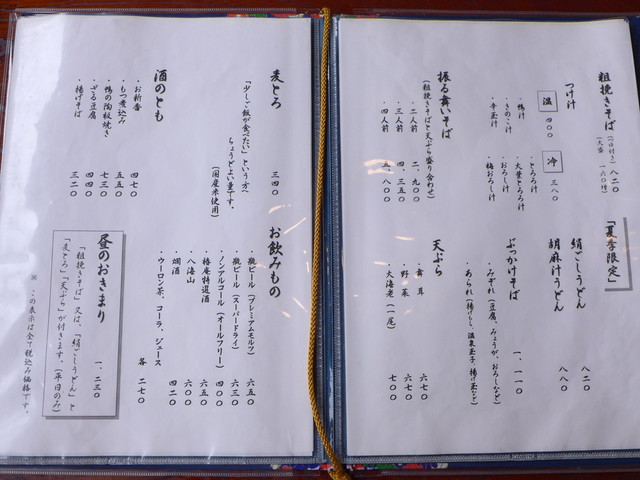 粗挽きそば(二八付き) 八二〇
(大盛 一六〇増)
つけ汁
温 四〇〇
・鴨汁
・きのこ汁
・辛玉汁
冷 三八〇
・とろろ汁
・大葉とろろ汁
・おろし汁
・梅おろし汁
振る舞いそば
(粗挽きそばと天ぷら盛り合わせ)
・二人前 二、九〇〇
・三人前 四、三五〇
・四人前 五、八〇〇
「夏季限定」
絹ごしうどん 八二〇
胡麻汁うどん 八八〇
ぶっかけそば 一、一一〇
・みぞれ(豆腐、みょうが、おろしなど)
・あられ(揚げもち、温泉玉子、揚げ玉など)
天ぷら
・舞茸 六七〇
・野菜 六七〇
・大海老(一尾) 七〇〇
麦とろ 三四〇
「少しご飯が食べたい」という方へ
ちょうどよい量です。
(国産米使用)
酒のとも
・お新香 四七〇
・もつ煮込み 五五〇
・鴨の陶板焼き 七三〇
・ざる豆腐 四四〇
・揚げそば 三二〇
お飲みもの
・瓶ビール(プレミアムモルツ) 六五〇
・瓶ビール(スーパードライ) 六三〇
・ノンアルコール(オールフリー) 四〇〇
・椿庵特選酒 六五〇
・八海山 六〇〇
・燗酒 四二〇
・ウーロン茶、コーラ、ジュース
各 二七〇
昼のおきまり 一、二三〇
「粗挽きそば」又は、「絹ごしうどん」と
「麦とろ」「天ぷら」が付きます。(平日のみ)
※この表示は全て税込み価格です。